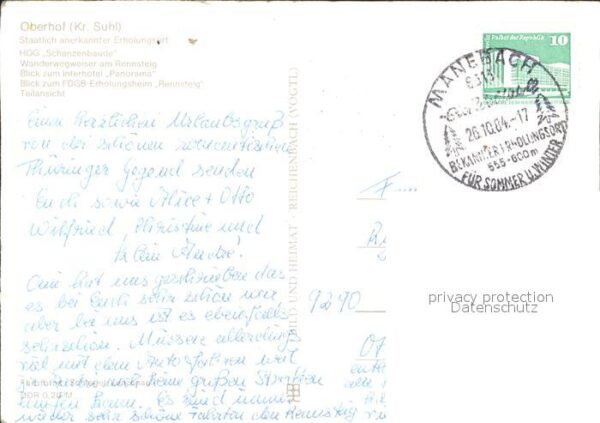 Oberhof (Kr. Suhl)
Staatlich anerkannter Erholungsort
HOG „Schanzenbaude"
Wanderwegweiser am Rennsteig
Blick zum Interhotel „Panorama"
Blick zum FDGB-Erholungsheim „Rennsteig"
Teilansicht
10
MANEBACH
26.10.84.-17
ERHOLUNGSORT
555-800m
FÜR SOMMER U. WINTER
Einen herzlichen Urlaubsgruß
von der schönen
Thüringer Gegend senden
Euch sowie Alice + Otto
Wilfried, Christine und
klein André!
hat uns geschrieben das
es bei Euch sehr schön war
aber bei uns ist es ebenfalls
sehr schön. Müssen allerdings
viel mit dem Auto fahren weil
keine großen Strecken
laufen kann. Es sind immer
wieder sehr schöne Fahrten den Rennsteig
BILD UND HEIMAT REICHENBACH (VOGTL)
F....
9290
privacy protection
Datenschutz
DDR 0,20 M